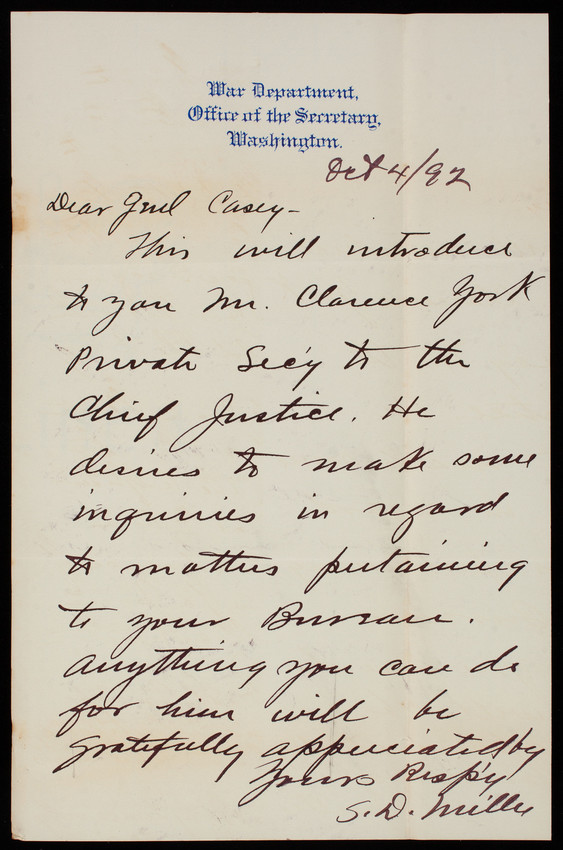 War Department,
Office of the Secretary,
Washington.
Oct 4/92
Dear Genl Casey-
This will introduce
to you Mr. Clarence York
Private Sec'y to the
Chief Justice. He
desires to make some
inquiries in regard
to matters pertaining
to your Bureau.
Anything you can do
for him will be
gratefully appreciated by
Yours Resp'y
S. D. Miller